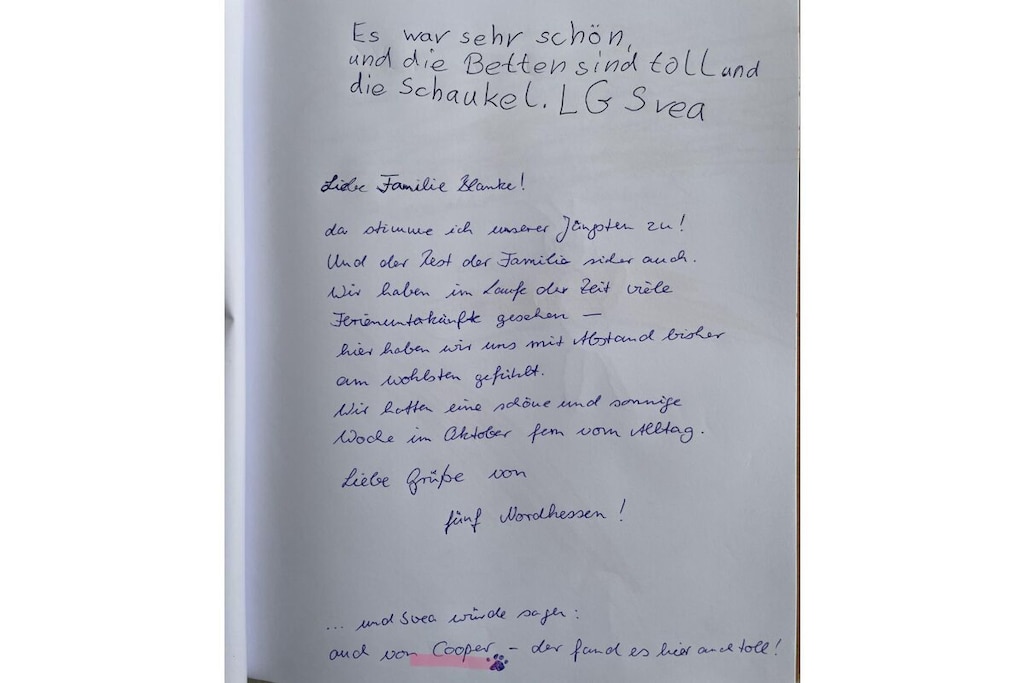 Es war sehr schön,
und die Betten sind toll und
die Schaukel. LG Svea
Liebe Familie Blanke!
da stimme ich unserer Jüngsten zu!
Und der Rest der Familie sicher auch.
Wir haben im Laufe der Zeit viele
Ferienunterkünfte gesehen –
hier haben wir uns mit Abstand bisher
am wohlsten gefühlt.
Wir hatten eine schöne und sonnige
Woche im Oktober fern vom Alltag.
Liebe Grüße von
fünf Nordhessen!
... und Svea würde sagen:
auch von Cooper – der fand es hier auch toll!